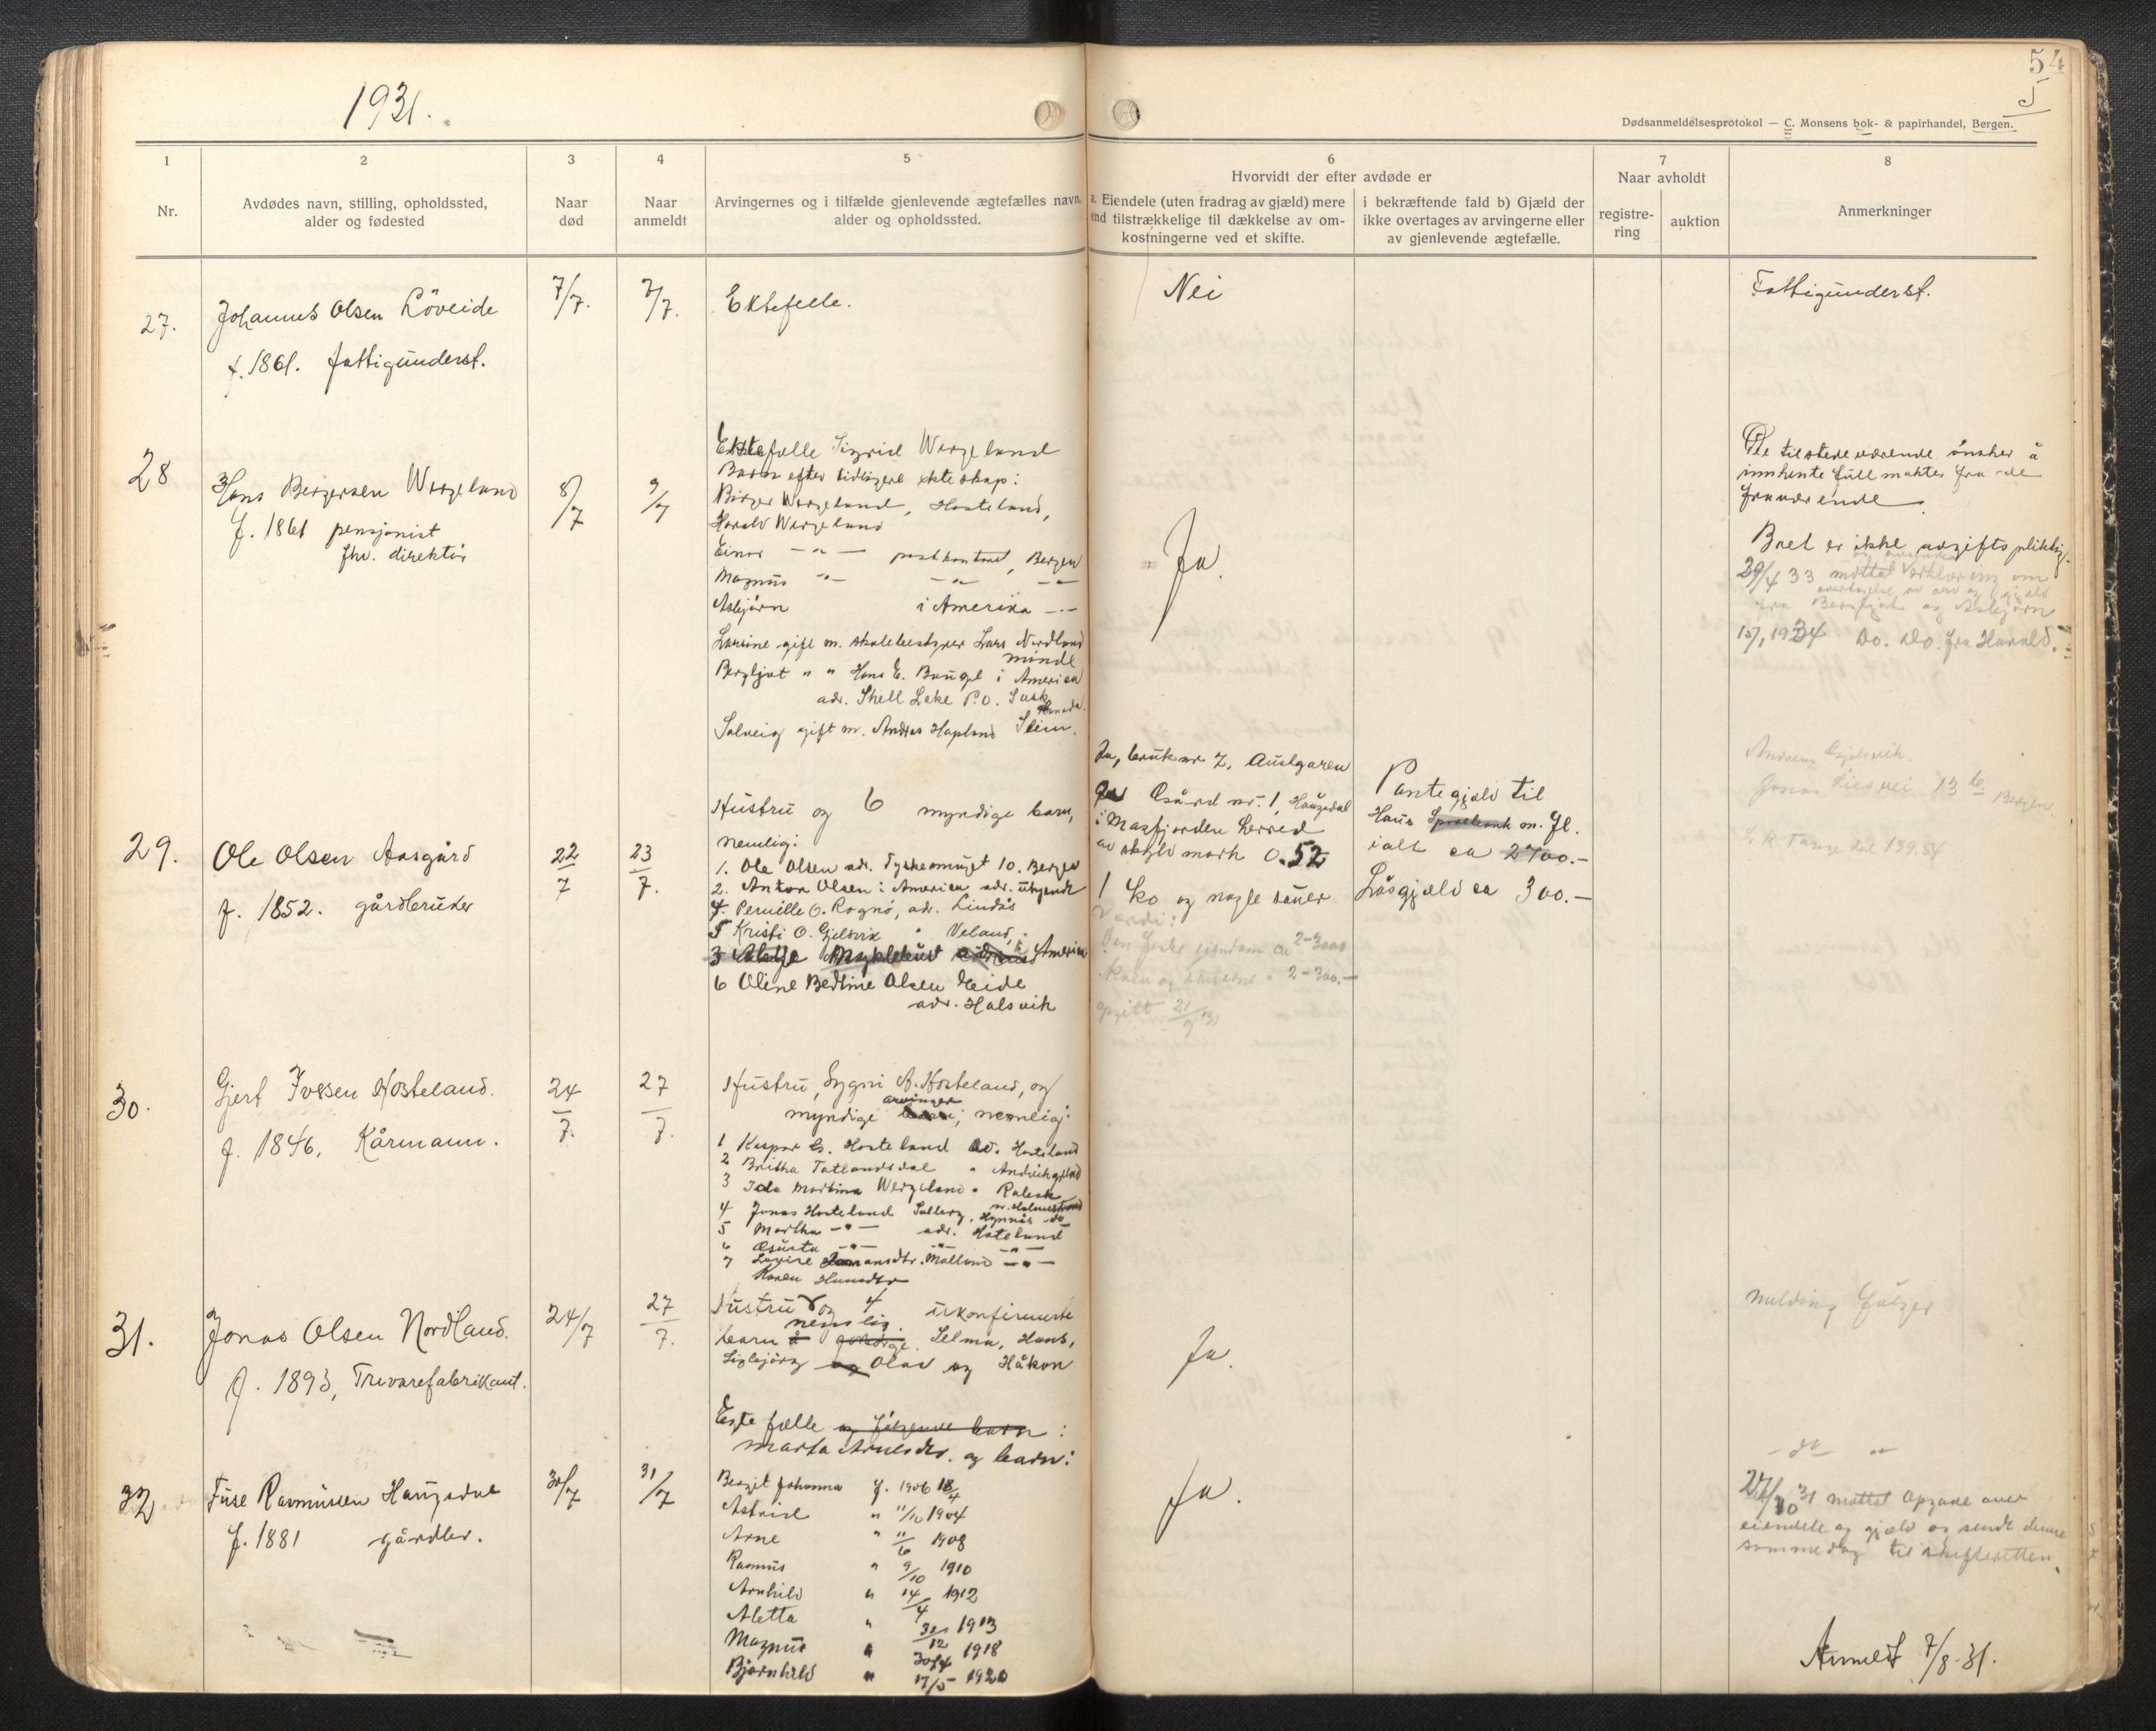 1931.
54
5
Dødsanmeldelsesprotokol — C. Monsens bok- & papirhandel, Bergen.
1
2
3
4
5
6
7
8
Nr.
Avdødes navn, stilling, opholdssted,
alder og fødested
Naar
død
Naar
anmeldt
Arvingernes og i tilfælde gjenlevende ægtefælles navn,
alder og opholdssted.
Hvorvidt der efter avdøde er
a. Eiendele (uten fradrag av gjæld) mere
end tilstrækkelige til dækkelse av om-
kostningerne ved et skifte.
i bekræftende fald b) Gjæld der
ikke overtages av arvingerne eller
av gjenlevende ægtefælle.
Naar avholdt
registre-
ring
auktion
Anmerkninger
27.
Johannes Olsen Löveide
f. 1861. fattigünderst.
7/7.
7/7.
Ektefelle.
Nei
Fattigünderst.
28
Hans Bergersen Wergeland
f. 1861 pensjonist
fhv. direktör
8/7
9/7
Ektefælle Sigrid Wergeland
Barn efter tidligere ekteskap:
Birger Wergeland, Hosteland,
Harald Wergeland
Einar —"— postkontoret, Bergen
Magnus "— —"— —"—
Asbjörn i Amerika —
Larsine gift m. skolebestyrer Lars Nordland
minde
Bergljot " " Hans E. Baugl i Amerika
adr. Shell Lake P.O. Sask
Kanada.
Solveig gift m. Andreas Hopland Seim.
Ja.
De tilstedeværende önsker å
innhente fullmakter fra de
fraværende
Boet er ikke avgiftspliktig.
29/4 33 mottat erklæring om
overtagelse av arv og gjæld
fra Bergljot og Asbjörn
15/1 1934 Do. Do. fra Harald.
29.
Ole Olsen Aasgård
f. 1852. gårdbruker
22/7
23/7.
Hüstrü og 6 myndige barn,
nemlig:
1. Ole Olsen adr. Tyskesmuget 10. Bergen
2. Anton Olsen i Amerika adr. ukjendt
4. Pernille O. Rognö, adr. Lindås
5 Kristi O. Gjelsvik " Veland,
3 Myklebust Amerika
6 Oline Bertine Olsen Eide
adr. Halsvik
Ja, bruk nr 7. Austgaren
Åsård nr. 1, Haugsdal
i Masfjorden herred
av skyld mark 0.52
1 ko og nogle sauer
Værdi:
Den faste eiendom ca 2-3000
Kuen og sauerne " 2-300.—
opgitt 21/9 31
Pantegjæld til
Haus Sparebank m. fl.
ialt ca 2700.—
Lösgjæld ca 300.—
Andreas Gjelsvik
Jonas Liesvei 13 b Bergen
tel 139.54
30.
Gjert Iversen Hosteland.
f. 1846. Kårmann.
24/7.
27/7.
Hüstrü, Sygni A. Hosteland, og
myndige arvinger, nemlig:
1 Kaspar G. Hosteland Ad. Hosteland
2 Britha Tatlandsdal " Andvikgrend
3 Ida Martina Wergeland "
4 Jonas Hosteland Solberg. nr. Holmestrand
5 Martha —"— adr. Hosteland
6 —"— —"— —"—
7 Lovise Molland —"—
Karen Hansdtr
31.
Jonas Olsen Nordland.
f. 1893, Trevarefabrikant.
24/7
27/7.
Hüstrü og 4 ukonfirmerte
barn nemlig. Selma, Hans,
Sigbjörg og Olav og Håkon
Ja.
Melding fölger
32
Tuse Rasmussen Haugsdal
f. 1881 gårdbr.
30/7
31/7
Ektefælle og fölgende barn:
Marta Arnesdtr. og barn:
Bergit Johanna f. 1906 18/4
Astrid " 11/10 1904
Arne " 11/6 1908
Rasmus " 9/10 1910
Arnhild " 14/4 1912
Aletta " 31/12 1913
Magnus " 30/4 1918
Bjørnhild " 17/5 1920
Ja.
— do — "
27/10 31 mottat opgave over
eiendele og gjæld og sendt denne
samme dag til skifteretten.
Anmeldt 7/8-31.